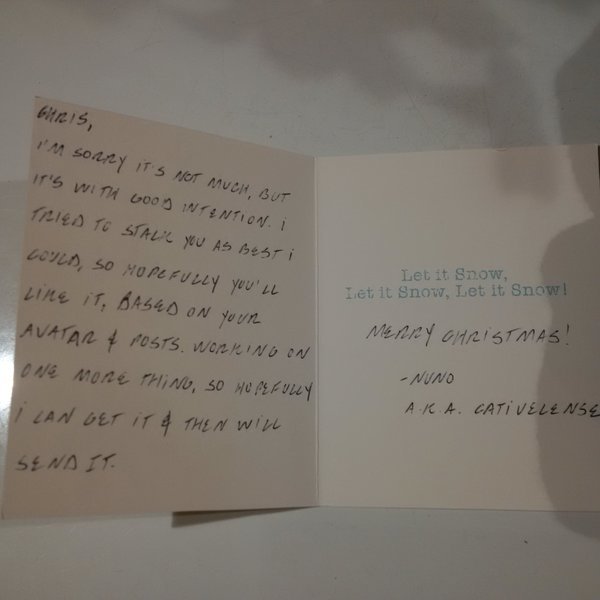 CHRIS,
I'M SORRY IT'S NOT MUCH, BUT
IT'S WITH GOOD INTENTION. I
TRIED TO STALK YOU AS BEST I
COULD, SO HOPEFULLY YOU'LL
LIKE IT, BASED ON YOUR
AVATAR & POSTS. WORKING ON
ONE MORE THING, SO HOPEFULLY
I CAN GET IT & THEN WILL
SEND IT.
Let it Snow,
Let it Snow, Let it Snow!
MERRY CHRISTMAS!
-NUNO
A.K.A. CATIVELENSE